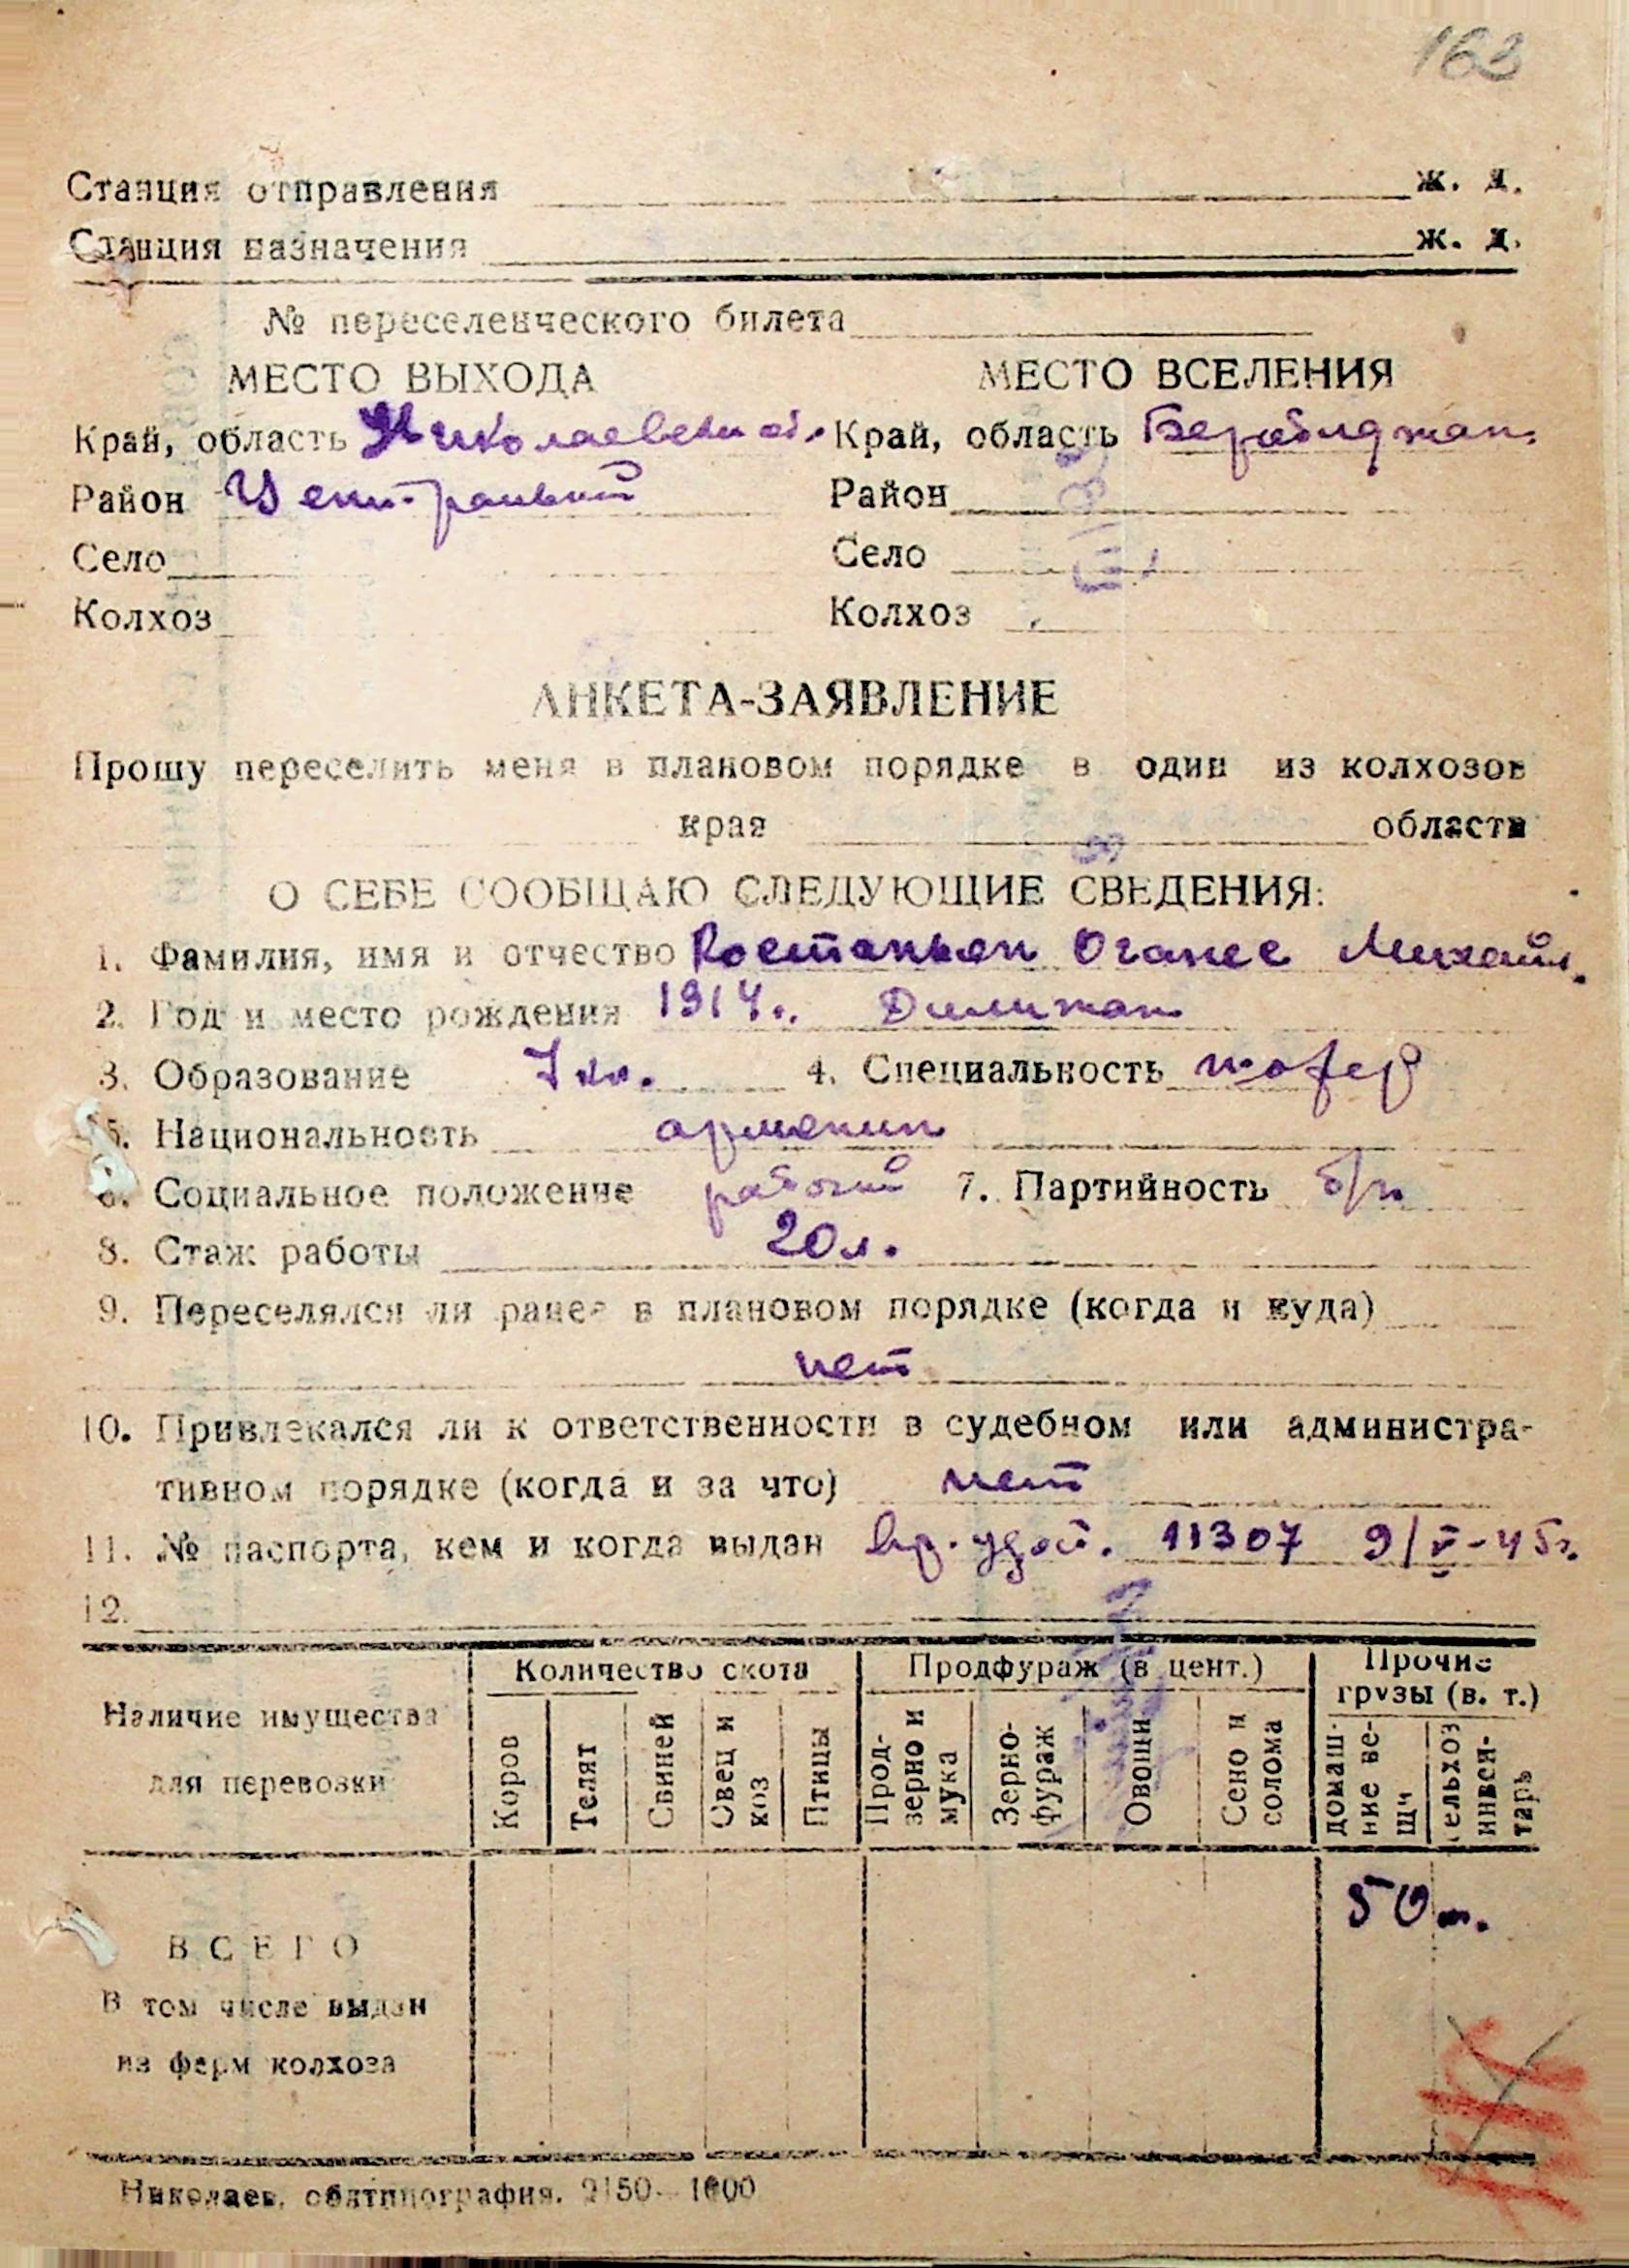 163
Станция отправления ж. д.
Станция назначения ж. д.
№ переселенческого билета
МЕСТО ВЫХОДА МЕСТО ВСЕЛЕНИЯ
Край, область Николаевская об. Край, область Беробиджан.
Район Центральный Район
Село Село
Колхоз Колхоз
АНКЕТА-ЗАЯВЛЕНИЕ
Прошу переселить меня в плановом порядке в один из колхозов
края области
О СЕБЕ СООБЩАЮ СЛЕДУЮЩИЕ СВЕДЕНИЯ:
1. Фамилия, имя и отчество Костаньян Оганес Михайл.
2. Год и место рождения 1914 г. Дилижан
3. Образование 7 кл. 4. Специальность шофер
5. Национальность армянин
6. Социальное положение рабочий 7. Партийность б/п
8. Стаж работы 20 л.
9. Переселялся ли ранее в плановом порядке (когда и куда)
нет
10. Привлекался ли к ответственности в судебном или администра-
тивном порядке (когда и за что) нет
11. № паспорта, кем и когда выдан вр. удост. 11307 9/V-45г.
12.
Наличие имущества для перевозки Количество скота Продфураж (в цент.) Прочие грузы (в. т.)
Коров Телят Свиней Овец и коз Птицы Прод-зерно и мука Зерно-фураж Овощи Сено и солома домаш-ние ве-щи сельхоз инвен-тарь
ВСЕГО 50
В том числе выдан
из ферм колхоза
Николаев, облтипография. 2150—1000